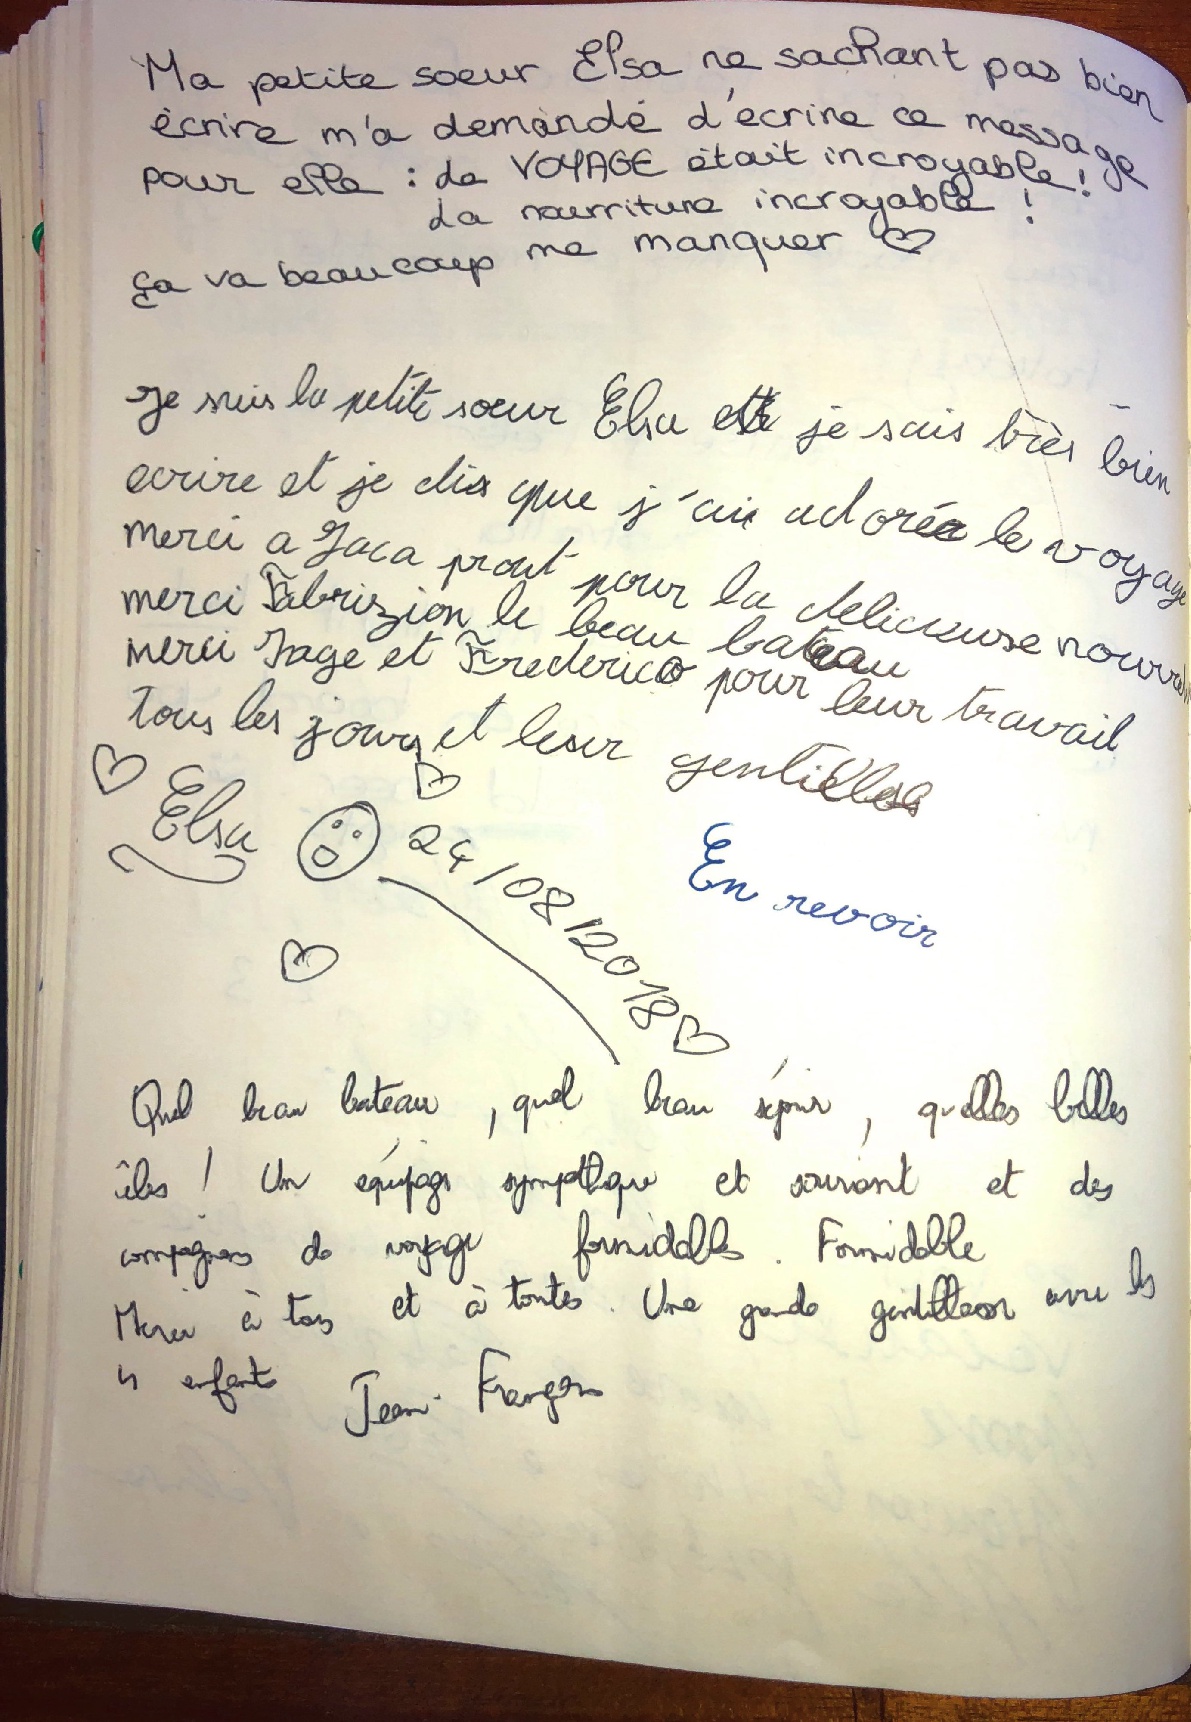 Ma petite soeur Elsa ne sachant pas bien
écrire m'a demandé d'écrire ce message
pour elle : Le VOYAGE était incroyable !
La nourriture incroyable !
ça va beaucoup me manquer ♡
Je suis la petite soeur Elsa et je sais très bien
ecrire et je dis que j'ai adorée le voyage
merci a Jaca prout pour la delicieuse
merci Fabrizion le beau bateau
merci Jage et Frederico pour leur travail
tous les jours et leur gentilles
Elsa
24/08/2018
En revoir
Quel beau bateau, quel beau séjour, quelles belles
îles ! Un équipage sympathique et souriant et des
compagnons de voyage formidables. Formidable
Merci à tous et à toutes. Une grande gentillesse avec les
4 enfants Jean-François